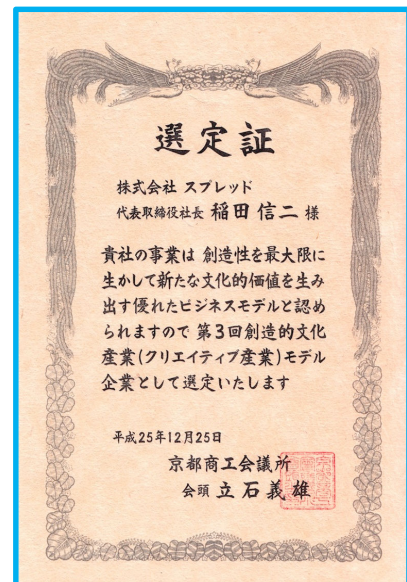 選定証
株式会社 スプレッド
代表取締役社長 稲田 信二 様
貴社の事業は 創造性を最大限に
生かして新たな文化的価値を生み
出す優れたビジネスモデルと認め
られますので 第3回創造的文化
産業(クリエイティブ産業)モデル
企業として選定いたします
平成25年12月25日
京都商工会議所
会頭 立石義雄